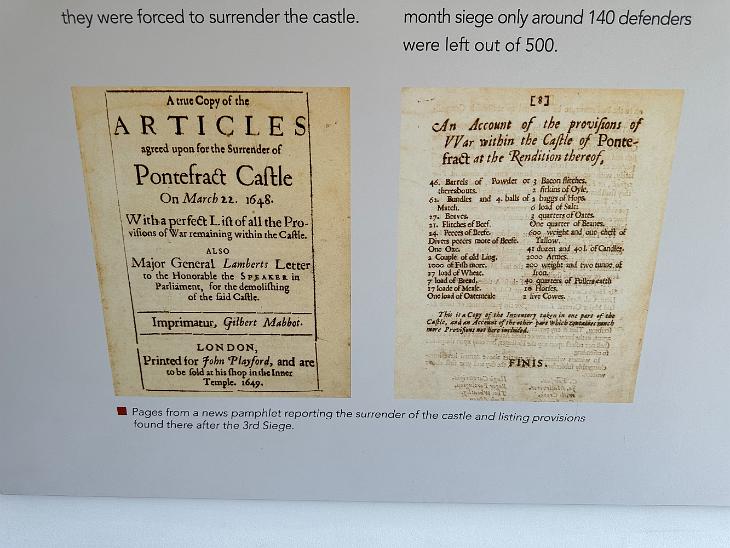 they were forced to surrender the castle.
month siege only around 140 defenders
were left out of 500.
A true Copy of the
ARTICLES
agreed upon for the Surrender of
Pontefract Castle
On March 22. 1648.
With a perfect List of all the Pro-
visions of War remaining within the Castle.
ALSO
Major General Lamberts Letter
to the Honorable the SPEAKER in
Parliament, for the demolishing
of the said Castle.
Imprimatur, Gilbert Mabbot.
LONDON,
Printed for John Playford, and are
to be sold at his shop in the Inner
Temple. 1649.
[8]
An Account of the provisions of
VVar within the Castle of Ponte-
fract at the Rendition thereof,
46. Barrels of Powder or
thereabouts.
62. Bundles and 4. balls of
Match.
27. Beeves.
21. Flitches of Beef.
24. Peeces of Beefe.
Divers peeces more of Beefe.
One Oxe.
2 Couple of old Ling.
1000 of Fish more.
27 load of Wheat.
7 load of Bread.
17 loade of Meale.
One load of Oatemeale
3 Bacon flitches.
2 firkins of Oyle.
2 baggs of Hops.
6 load of Salt.
3 quarters of Oates.
One quarter of Beanes.
600 weight and one chest of
Tallow.
41 dozen and 40 l. of Candles.
2000 Armes.
200 weight and two tunne of
Iron.
40 quarters of
18 Horses.
2 live Cowes.
This is a Copy of the Inventory taken in one part of the
Castle, and an Account of the other part which containes much
more Provisions not here included.
FINIS.
Pages from a news pamphlet reporting the surrender of the castle and listing provisions
found there after the 3rd Siege.